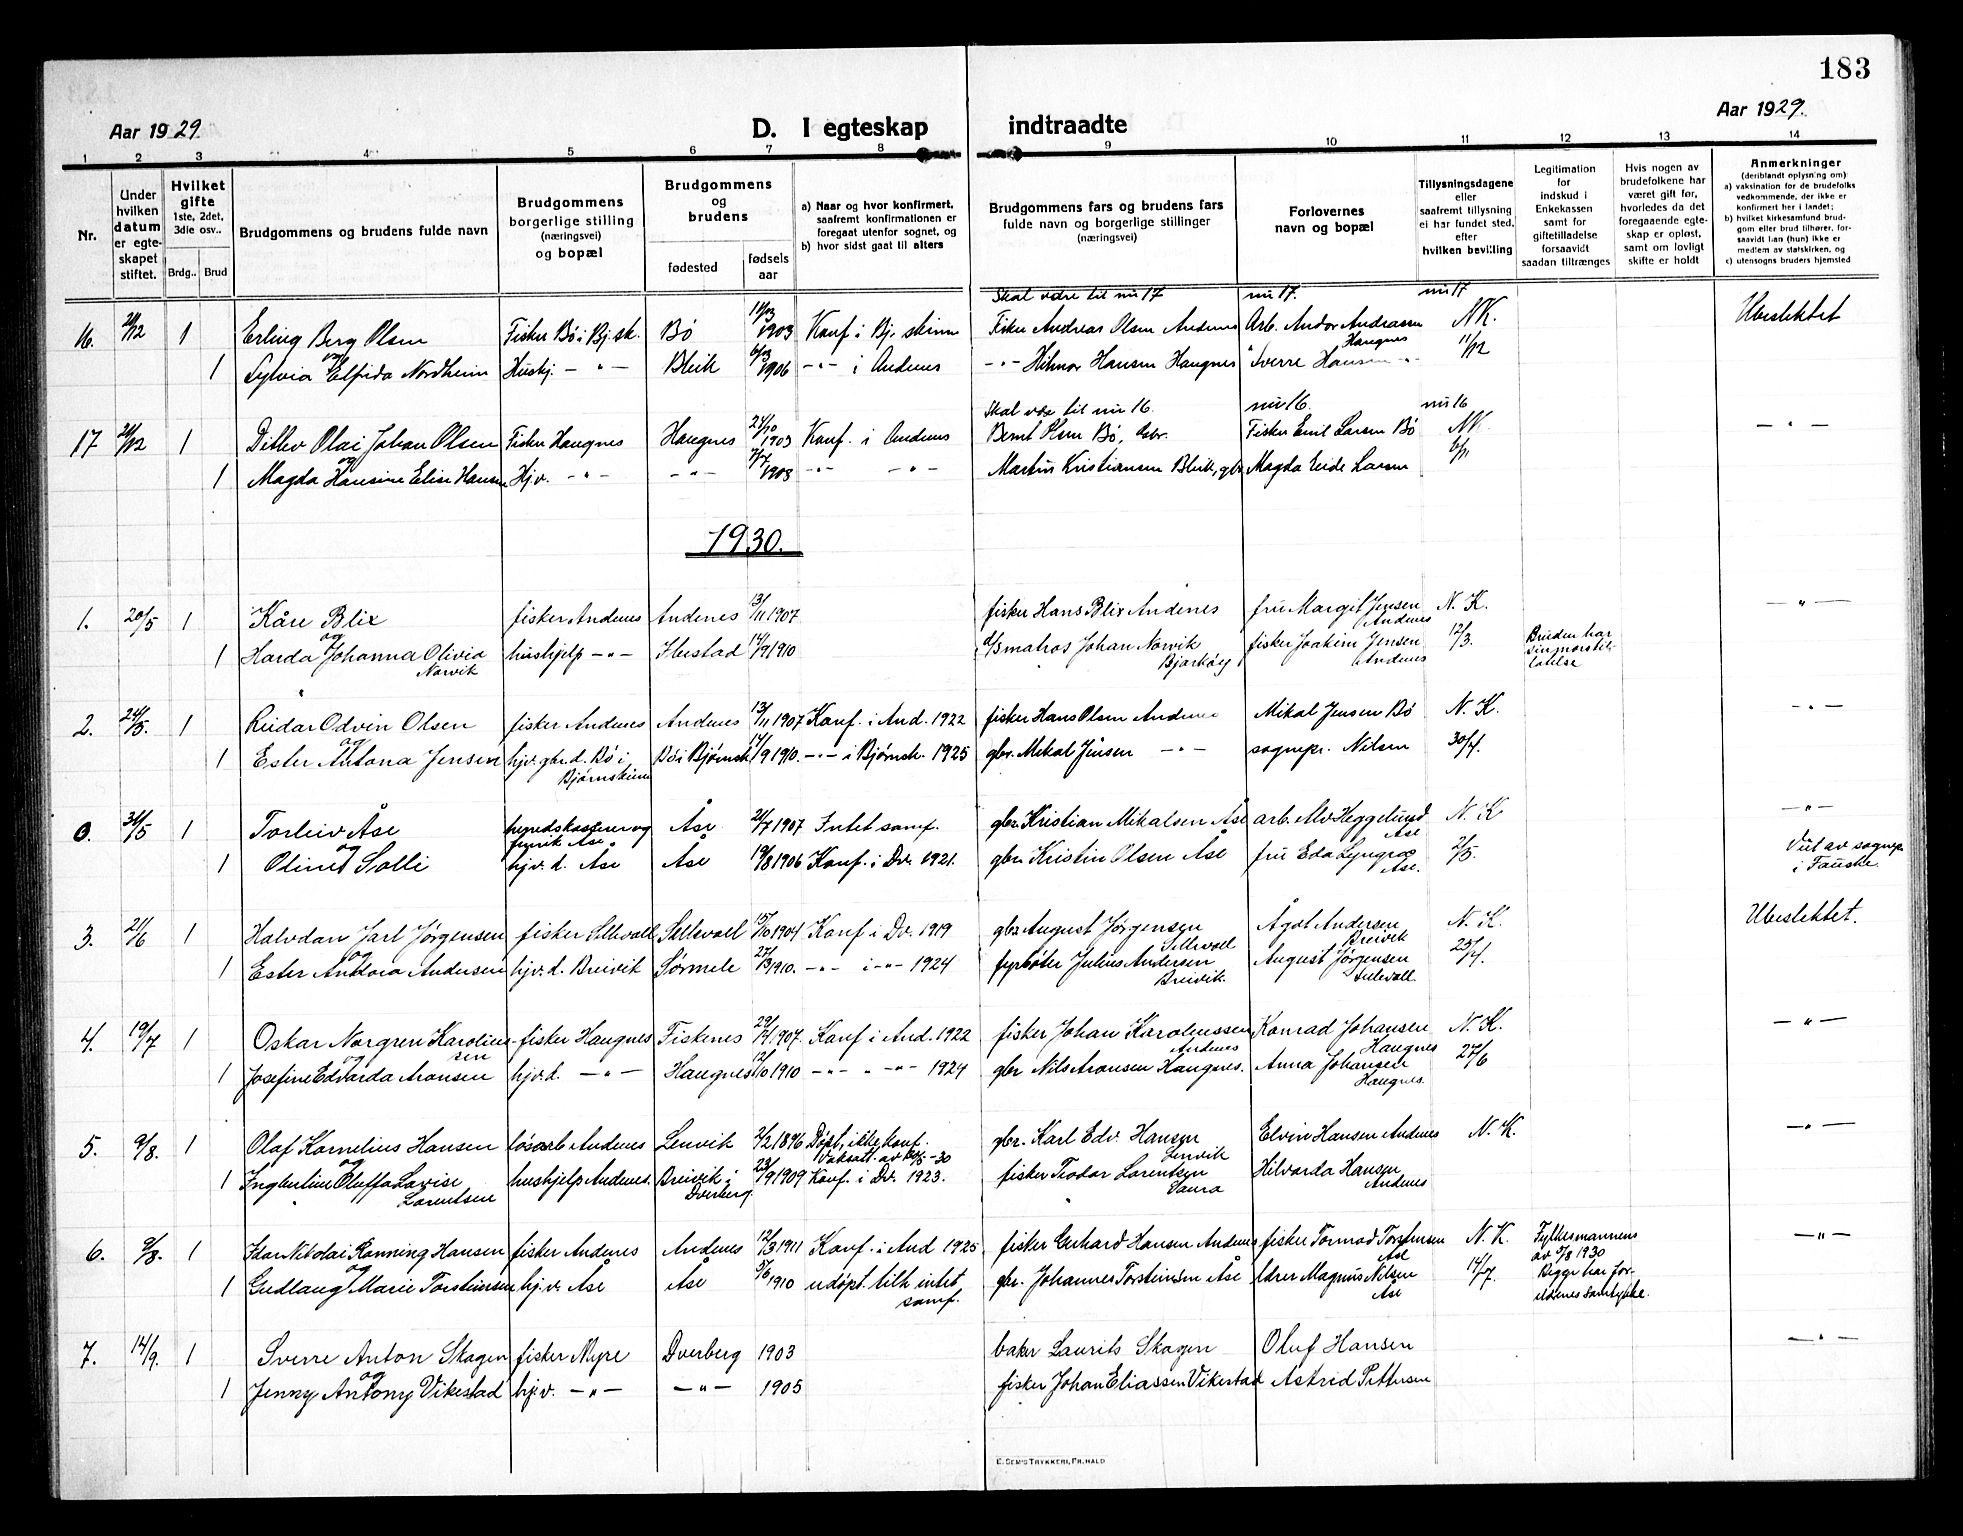 183
Aar 1929. D. I egteskap indtraadte Aar 1929.
1 2 3 4 5 6 7 8 9 10 11 12 13 14
Nr.
Under hvilken datum er egteskapet stiftet.
Hvilket gifte 1ste, 2det, 3die osv..
Brdg.. Brud
Brudgommens og brudens fulde navn
Brudgommens borgerlige stilling (næringsvei) og bopæl
Brudgommens og brudens
fødested
fødsels aar
a) Naar og hvor konfirmert, saafremt konfirmationen er foregaat utenfor sognet, og
b) hvor sidst gaat til alters
Brudgommens fars og brudens fars fulde navn og borgerlige stillinger (næringsvei)
Forlovernes navn og bopæl
Tillysningsdagene eller saafremt tillysning ei har fundet sted, efter hvilken bevilling
Legitimation for indskud i Enkekassen samt for giftetilladelse forsaavidt saadan tiltrænges
Hvis nogen av brudefolkene har været gift før, hvorledes da det foregaaende egteskap er opløst, samt om lovligt skifte er holdt
Anmerkninger (deriblandt oplysning om)
a) vaksination for de brudefolks vedkommende, der ikke er konfirmert her i landet;
b) hvilket kirkesamfund brudgom eller brud tilhører, forsaavidt han (hun) ikke er medlem av statskirken, og
c) utensogns bruders hjemsted
Skal være til nr 17 nr 17. nr 17
16. 1 Erling Berg Olsen Fisker Bø i Bj.sk. Bø 1903 Konf i Bj. skinn Fisker Andreas Olsen Andenes Arb. Andor Andreassen Haugnes NK. Ubeslektet
og
1 Sylvia Elfrida Nordheim Hushj. - " - Bleik 1906 - " - i Andenes - " - Hilmar Hansen Haugnes Sverre Hansen - " 11/12
Skal være til nr 16. nr 16. nr 16
17 1 Ditlev Olai Johan Olsen Fisker Haugnes Haugnes 24/10 1903 Konf. i Andenes Bernt Olsen Bø, Fisker Emil Larsen Bø NK. - " -
og
1 Magda Hansine Elise Hansen Hjv. - " - - " - 1903 - " - - " - Martin Kristiansen Bleik, gbr Magda Larsen 6/11
1930.
1. 20/5 1 Kåre Blix fisker Andenes Andenes 13/11 1907 fisker Hans Blix Andenes fru Margit Jensen Andenes N. K. - " -
og
1 Harda Johanna Olivia Norvik hushjelp - " - Ibestad 14/9 1910 matros Johan Norvik Bjarkøy fisker Joakim Jensen Andenes 12/3. Bruden har
2. 24/5. 1 Reidar Odvin Olsen fisker Andenes Andenes 13/11 1907 Konf. i And. 1922 fisker Hans Olsen Andenes Mikal Jensen Bø N. K. - " -
og
1 Ester Antona Jensen hjv. gbr.d. Bø i Bjørnskinn Bø i Bjørnsk 14/9 1910. - " - i Bjørnsk. 1925 gbr. Mikal Jensen - " - sognepr. Nilsen 30/4.
0. 31/5 1 Torleiv Åse herredskasserer og Åse Åse 1907 Intet samf. gbr. Kristian Mikalsen Åse arb. Alv Heggelund Åse N. K - " -
og
1 Oline Solli hjv. d. Åse Åse 19/8 1906 Konf. i Dv. 1921. gbr. Kristin Olsen Åse fru Eda Lyngra Åse. 2/5. Viet av sognepr i Fauske.
3. 21/6 1 Halvdan Jarl Jørgensen fisker Sellevoll Sellevoll 15/10 1904 Konf i Dv. 1919 gbr. August Jørgensen Sellevoll Ågot Andersen Breivik N. K. Ubeslektet.
og
1 Ester Andersen hjv. d. Breivik Sørmele 27/3 1910. - " - i - " - 1924 fyrbøter Julius Andersen Breivik. August Jørgensen Sellevoll. 25/4.
4. 19/7 1 Oskar Norgren Karoliussen fisker Haugnes Fiskenes 29/4 1907. Konf i And. 1922 fisker Johan Karoliussen Andenes Konrad Johansen Haugnes N. K. - " -
og
1 Josefine Edvarda Aronsen hjv. d. - " - Haugnes 1910 - " - - " - 1924 gbr Nils Aronsen Haugnes. Anna Johansen Haugnes. 27/6
5. 9/8. 1 Olaf Kornelius Hansen løsarb Andenes Lenvik 2/2 1896 Døpt, ikke konf. gbr. Karl Edv. Hansen Lenvik Elvin Hansen Andenes N. K. - " -
og
1 Ingbertine Oluffa Lovise Lorentsen hushjelp Andenes. Breivik i Dverberg 23/9 1909 Konf. i Dv. 1923. fisker Teodor Lorentsen Saura Hilvarda Hansen Andenes
6. 9/8. 1 Idar Nikolai Rønning Hansen fisker Andenes Andenes 12/3 1911 Konf. i And 1925 fisker Gerhard Hansen Andenes fisker Tormod Torstensen Åse N. K. Fylkesmannens av 5/8 1930 - " -
og
1 Gudlaug Marie Torsteinsen hj.v. Åse Åse 5/6 1910 udøpt. tilh. intet samf. gbr. Johannes Torsteinsen Åse lærer Magnus Nilsen Åse 14/7. Begge har foreldrenes samtykke.
7. 14/9. 1 Sverre Anton Skagen fisker Myre Dverberg 1903 baker Laurits Skagen Oluf Hansen - " -
og
1 Jenny Antony Vikestad hj.v. - " - - " - 1905 fisker Johan Eliassen Vikestad Astrid Pettersen
E. SEM'S TRYKKERI, FR. HALD